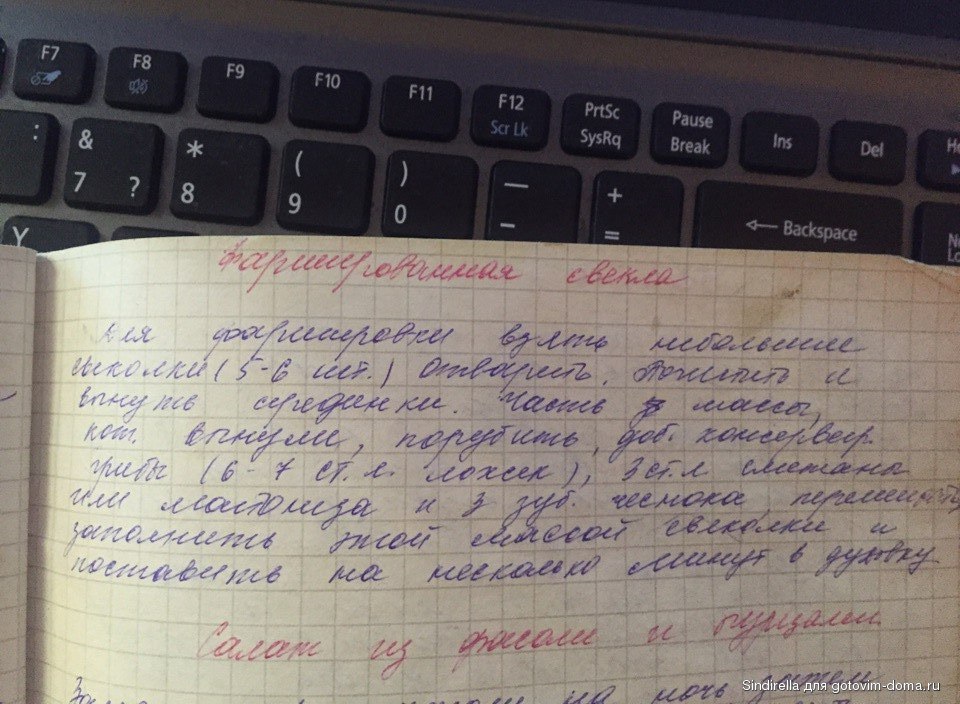 F7
F8
F9
F10
F11
F12
Scr Lk
PrtSc
SysRq
Pause
Break
Ins
Del
:
&
7 ?
*
8
(
9
)
0
—
–
+
=
← Backspace
Y
Фаршированная свекла
Для фаршировки взять небольшие
свеколки (5-6 шт.) Отварить. Почистить и
вынуть серединки. Часть массы,
кот. вынули, порубить, доб. консервир.
грибы (6-7 ст. л. ложек), 3 ст. л сметаны
или майонеза и 3 зуб. чеснока, перемешать,
заполнить этой массой свеколки и
поставить на несколько минут в духовку
Салат из фасоли и
на ночь
Sindirella для gotovim-doma.ru